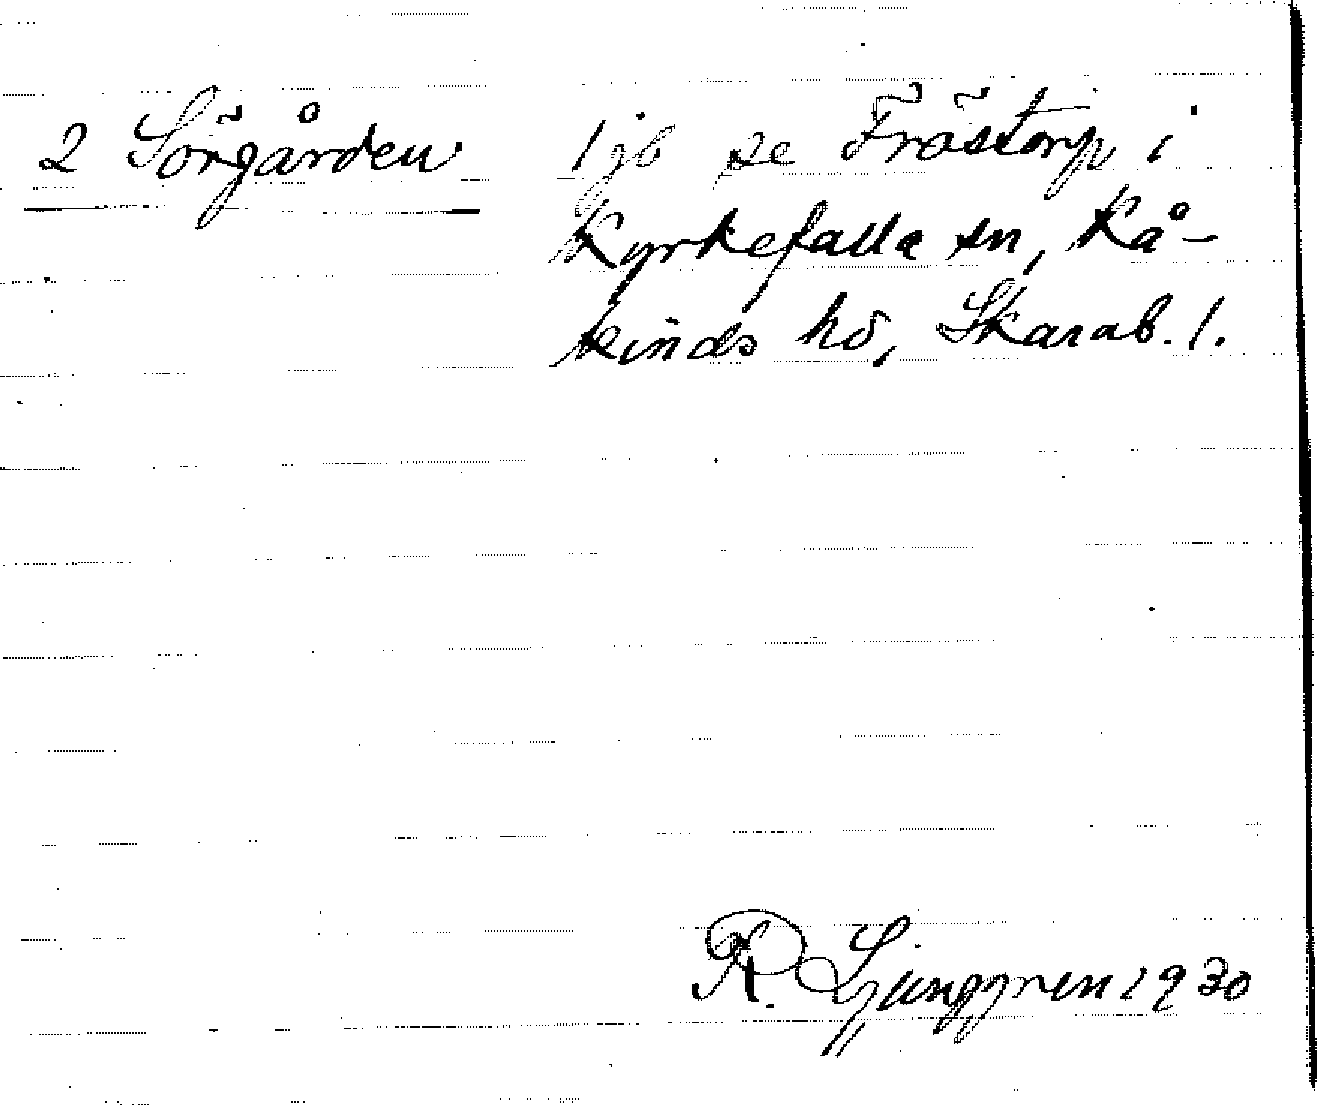 2 Sörgården 1 jb se Fröstorp i
Kyrkefalla sn, Kå-
kinds hd, Skarab. l.
R. Ljunggren 1930